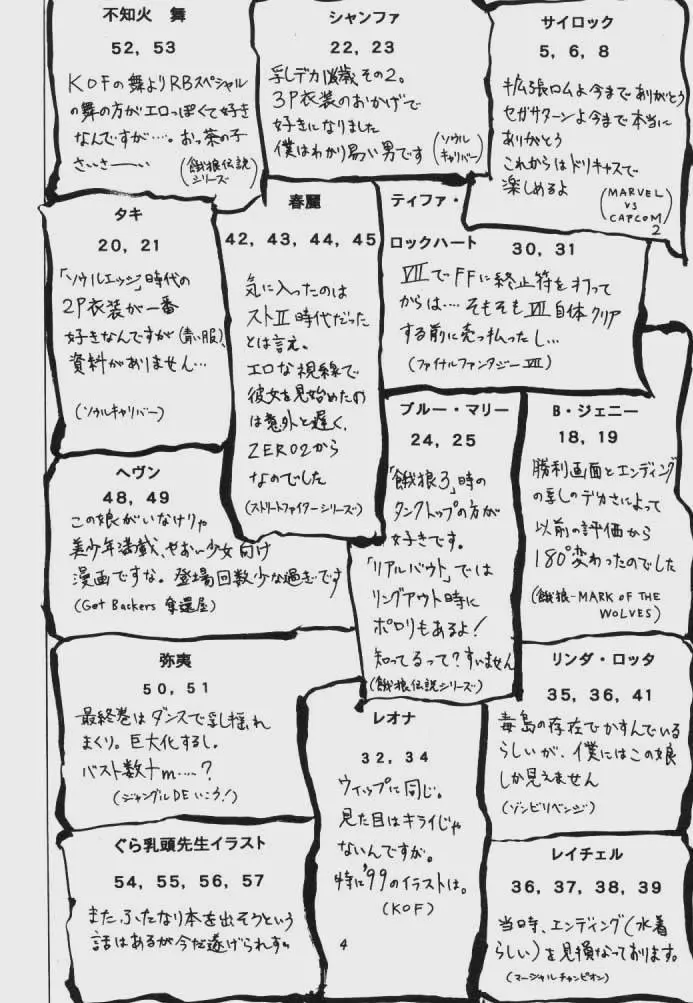 不知火 舞
52, 53
KOFの舞よりRBスペシャル
の舞の方がエロっぽくて好き
なんですが‥‥。お茶の子
さいさーーい
(餓狼伝説
シリーズ)
シャンファ
22, 23
乳デカ 歳その2。
3P衣装のおかげで
好きになりました
僕はわかり易い男です
(ソウル
キャリバー)
サイロック
5, 6, 8
拡張ロムよ今までありがとう
セガサターンよ今まで本当に
ありがとう
これからはドリキャスで
楽しめるよ
(MARVEL
VS
CAPCOM
2
タキ
20, 21
「ソウルエッジ」時代の
2P衣装が一番
好きなんですが(青い服)、
資料がありません…
(ソウルキャリバー)
春麗
42, 43, 44, 45
気に入ったのは
ストⅡ時代だった
とは言え。
エロな視線で
彼女を見始めたの
は意外と遅く、
ZERO2から
なのでした
(ストリートファイターシリーズ)
ティファ・
ロックハート
30, 31
ⅦでFFに終止符を打って
からは‥‥そもそもⅦ自体クリア
する前に売っ払ったし…
(ファイナルファンタジーⅦ)
ブルー・マリー
24, 25
「餓狼3」時の
タンクトップの方が
好きです。
「リアルバウト」では
リングアウト時に
ポロリもあるよ!
知ってるって?すいません
(餓狼伝説シリーズ)
B・ジェニー
18, 19
勝利画面とエンディング
の乳のデカさによって
以前の評価から
180°変わったのでした
(餓狼-MARK OF THE
WOLVES)
ヘヴン
48, 49
この娘がいなけりゃ
美少年満載、やおい少女向け
漫画ですな。登場回数少な過ぎです
(Get Backers 奪還屋)
弥夷
50, 51
最終巻はダンスで乳揺れ
まくり。巨大化するし。
バスト数十m‥‥?
(ジャングルDEいこう!)
レオナ
32, 34
ウィップに同じ。
見た目はキライじゃ
ないんですが。
特に'99のイラストは。
(KOF)
リンダ・ロッタ
35, 36, 41
毒島の存在でかすんでいる
らしいが、僕にはこの娘
しか見えません
(ゾンビリベンジ)
ぐら乳頭先生イラスト
54, 55, 56, 57
また、ふたなり本を出そうという
話はあるが今だ遂げられず。
レイチェル
36, 37, 38, 39
当日時、エンディング(水着
らしい)を見損なっております。
(マーシャルチャンピオン)
4